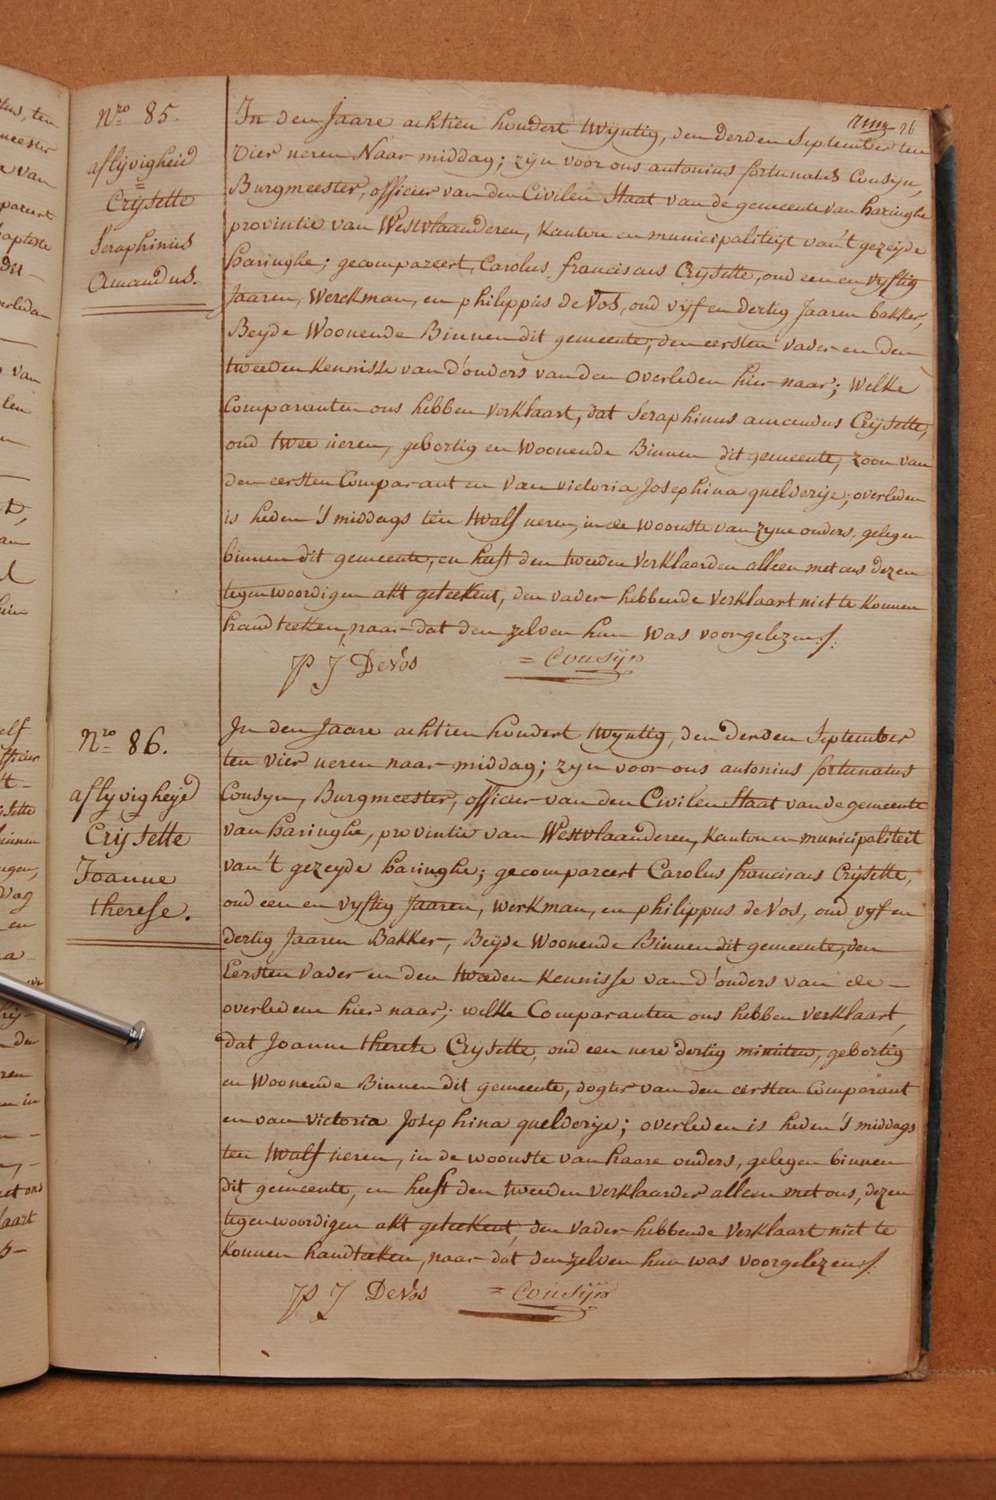 Nro 85.
aflijvigheid
=
Crijsette
Seraphinus
Amandus.
26
In den Jaare achtien hondert twyntig, den derden September ten
vier ueren Naar middag; zijn voor ons antonius fortunatus Cousyn,
Burgmeester, officier van den Civilen Staat van de gemeente van haringhe
provintie van Westvlaanderen, Kanton en municipaliteijt van't gezeijde
haringhe; gecompareert, Carolus franciscus Crijsette, oud een en vyftig
Jaaren, Werckman, en philippus de Vos, oud vijf en dertig Jaaren bakker,
Beyde Woonende Binnen dit gemeente; den eersten vader en den
tweeden kennisse van d'ouders van den overleden hier naar; Welke
Comparanten ons hebben verklaart, dat Seraphinus amandus Crijsette,
oud twee ueren, gebortig en Woonende Binnen dit gemeente, zoon van
den eersten Comparant en van victoria Josephina quelderije; overleden
is heden 's middags ten twalf ueren, in de woonste van zyne ouders, gelegen
binnen dit gemeente; en heeft den tweeden verklaarden alleen met ons dezen
tegenwoordigen akt geteekent, den vader hebbende verklaart niet te konnen
handteeken, naar dat den zelven hun was voorgelezen ./.
P J DeVos = Cousijn
Nro 86.
aflyvigheyd
Crijsette
Joanne
therese.
In den Jaare achtien hondert twyntig, den derden September
ten vier ueren naar middag; zyn voor ons antonius fortunatus
Cousyn, Burgmeester, officier van den Civilen Staat van de gemeente
van haringhe, provintie van Westvlaanderen, Kanton en municipaliteit
van't gezeyde haringhe; gecompareert Carolus franciscus Crijsette,
oud een en vyftig Jaaren, werkman, en philippus de Vos, oud vyf en
dertig Jaaren Bakker, Beyde Woonende Binnen dit gemeente, den
Eersten vader en den tweeden kennisse van d'ouders van de
overledene hier naar; welke Comparanten ons hebben verklaart,
dat Joanne therese Crijsette, oud een uere dertig minuten, gebortig
en Woonende Binnen dit gemeente, dogter van den eersten Comparant
en van victoria Josephina quelderije; overleden is heden 's middags
ten twalf ueren, in de woonste van haare ouders, gelegen binnen
dit gemeente, en heeft den tweeden verklaarder alleen met ons, dezen
tegenwoordigen akt geteekent, den vader hebbende verklaart niet te
konnen handteeken, naar dat den zelven hun was voorgelezen ./.
P J DeVos = Cousijn